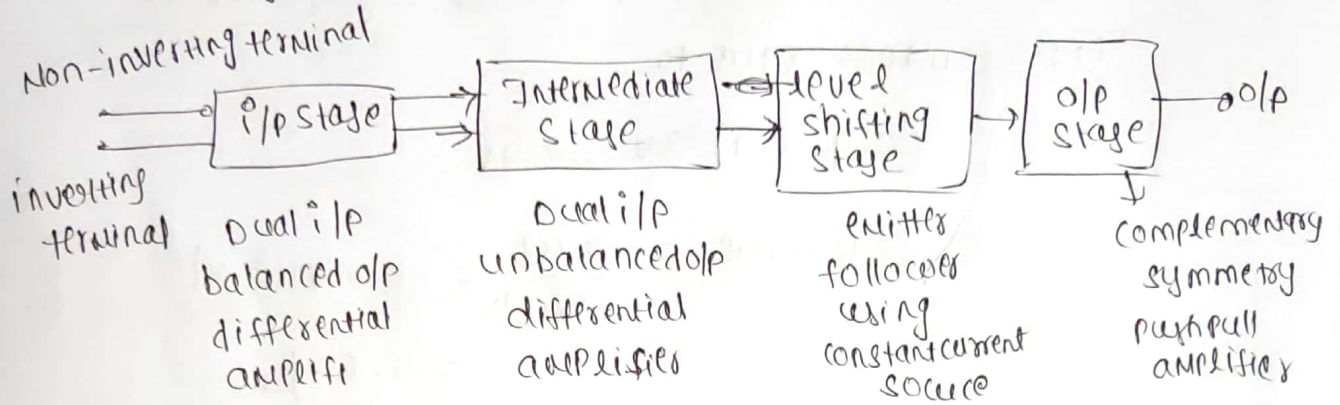 Non-inverting terminal
i/p stage
Intermediate
stage
level
shifting
stage
o/p
stage
o/p
inverting
terminal
Dual i/p
balanced o/p
differential
amplifi
Dual i/p
unbalanced o/p
differential
amplifier
emitter
follower
using
constant current
source
complementary
symmetry
push pull
amplifier